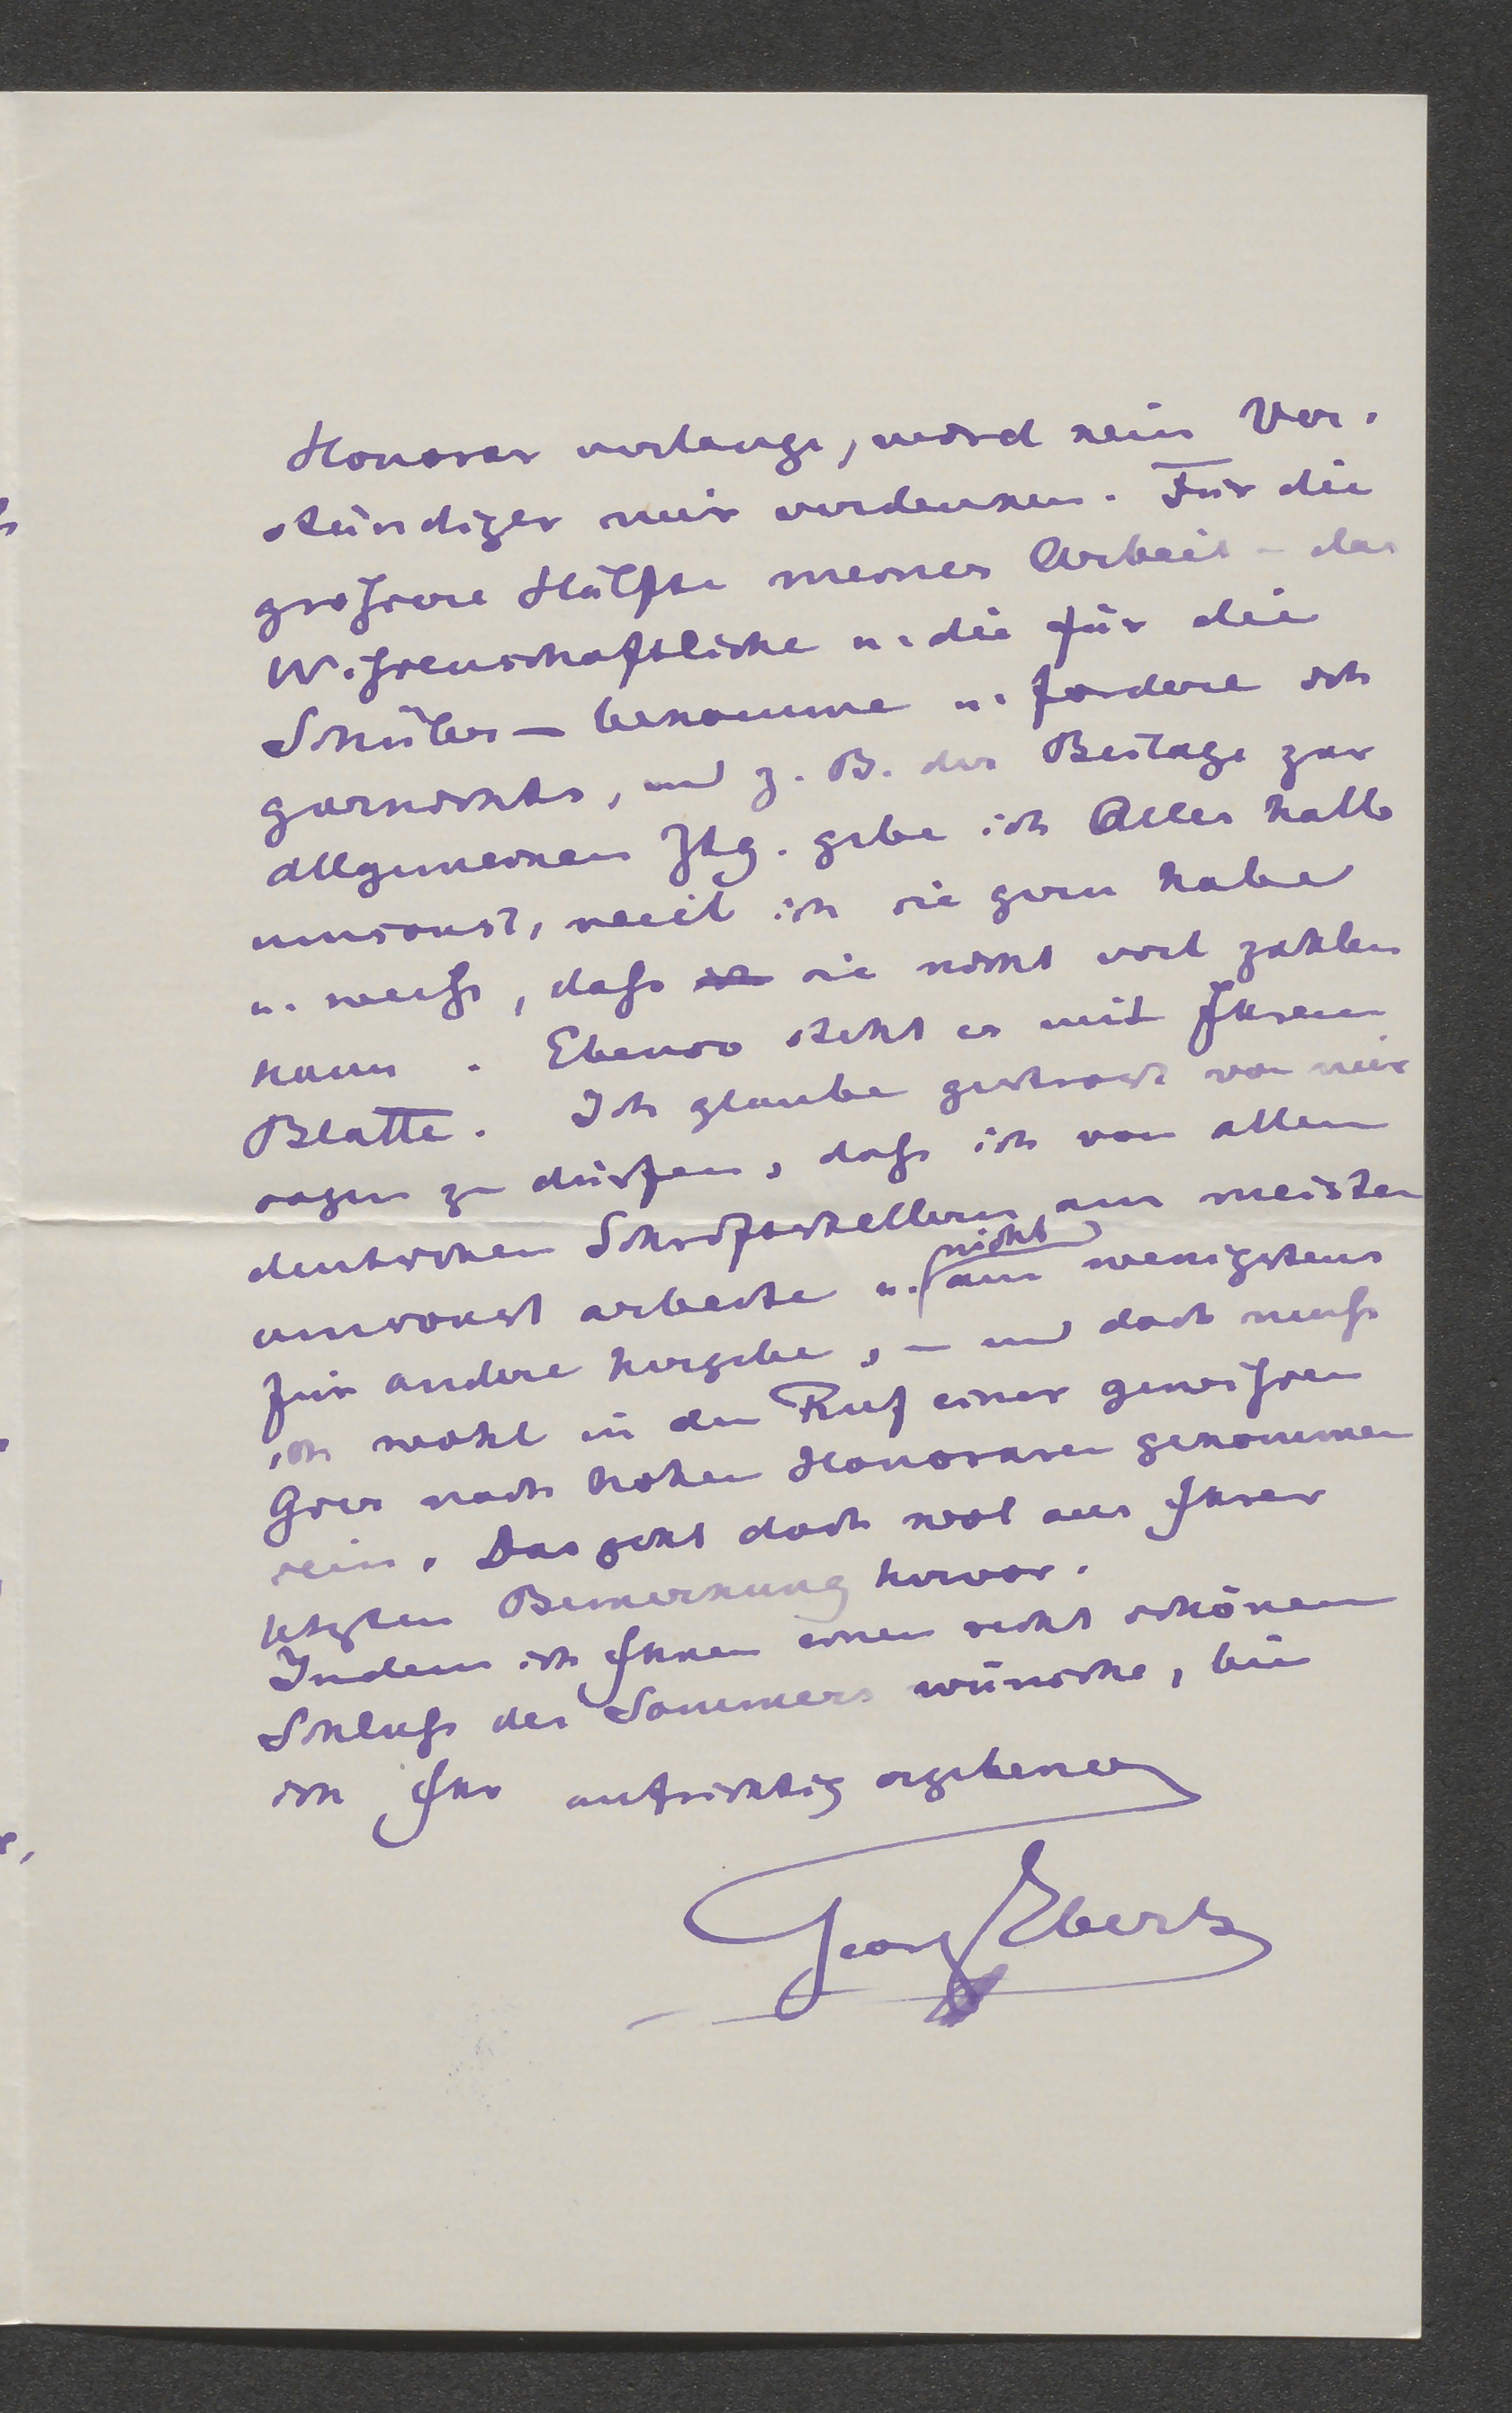 Honorar verlange, wird kein Ver-
ständiger mir verdenken. Für die
größere Hälfte meiner Arbeit – das
Wißenschaftliche u. die für die
Schüler – bekomme u. fordere ich
garnichts, und z. B. der Beilage zur
Allgemeinen Ztg. gebe ich Alles halb
umsonst, weil ich sie gern habe
u. weiß, daß sie nicht viel zahlen
kann. Ebenso steht es mit Ihrem
Blatte. Ich glaube getrost von mir
sagen zu dürfen, daß ich von allen
deutschen Schriftstellern am meisten
umsonst arbeite u. nicht am wenigstens
für andere hergebe, – und doch muß
ich wohl in den Ruf einer gewißen
Gier nach hohen Honoraren gekommen
sein. Das geht doch wol aus Ihrer
letzten Bemerkung hervor.
Indem ich Ihnen einen recht schönen
Schluß des Sommers wünsche, bin
ich Ihr aufrichtig ergebener
Georg Ebers